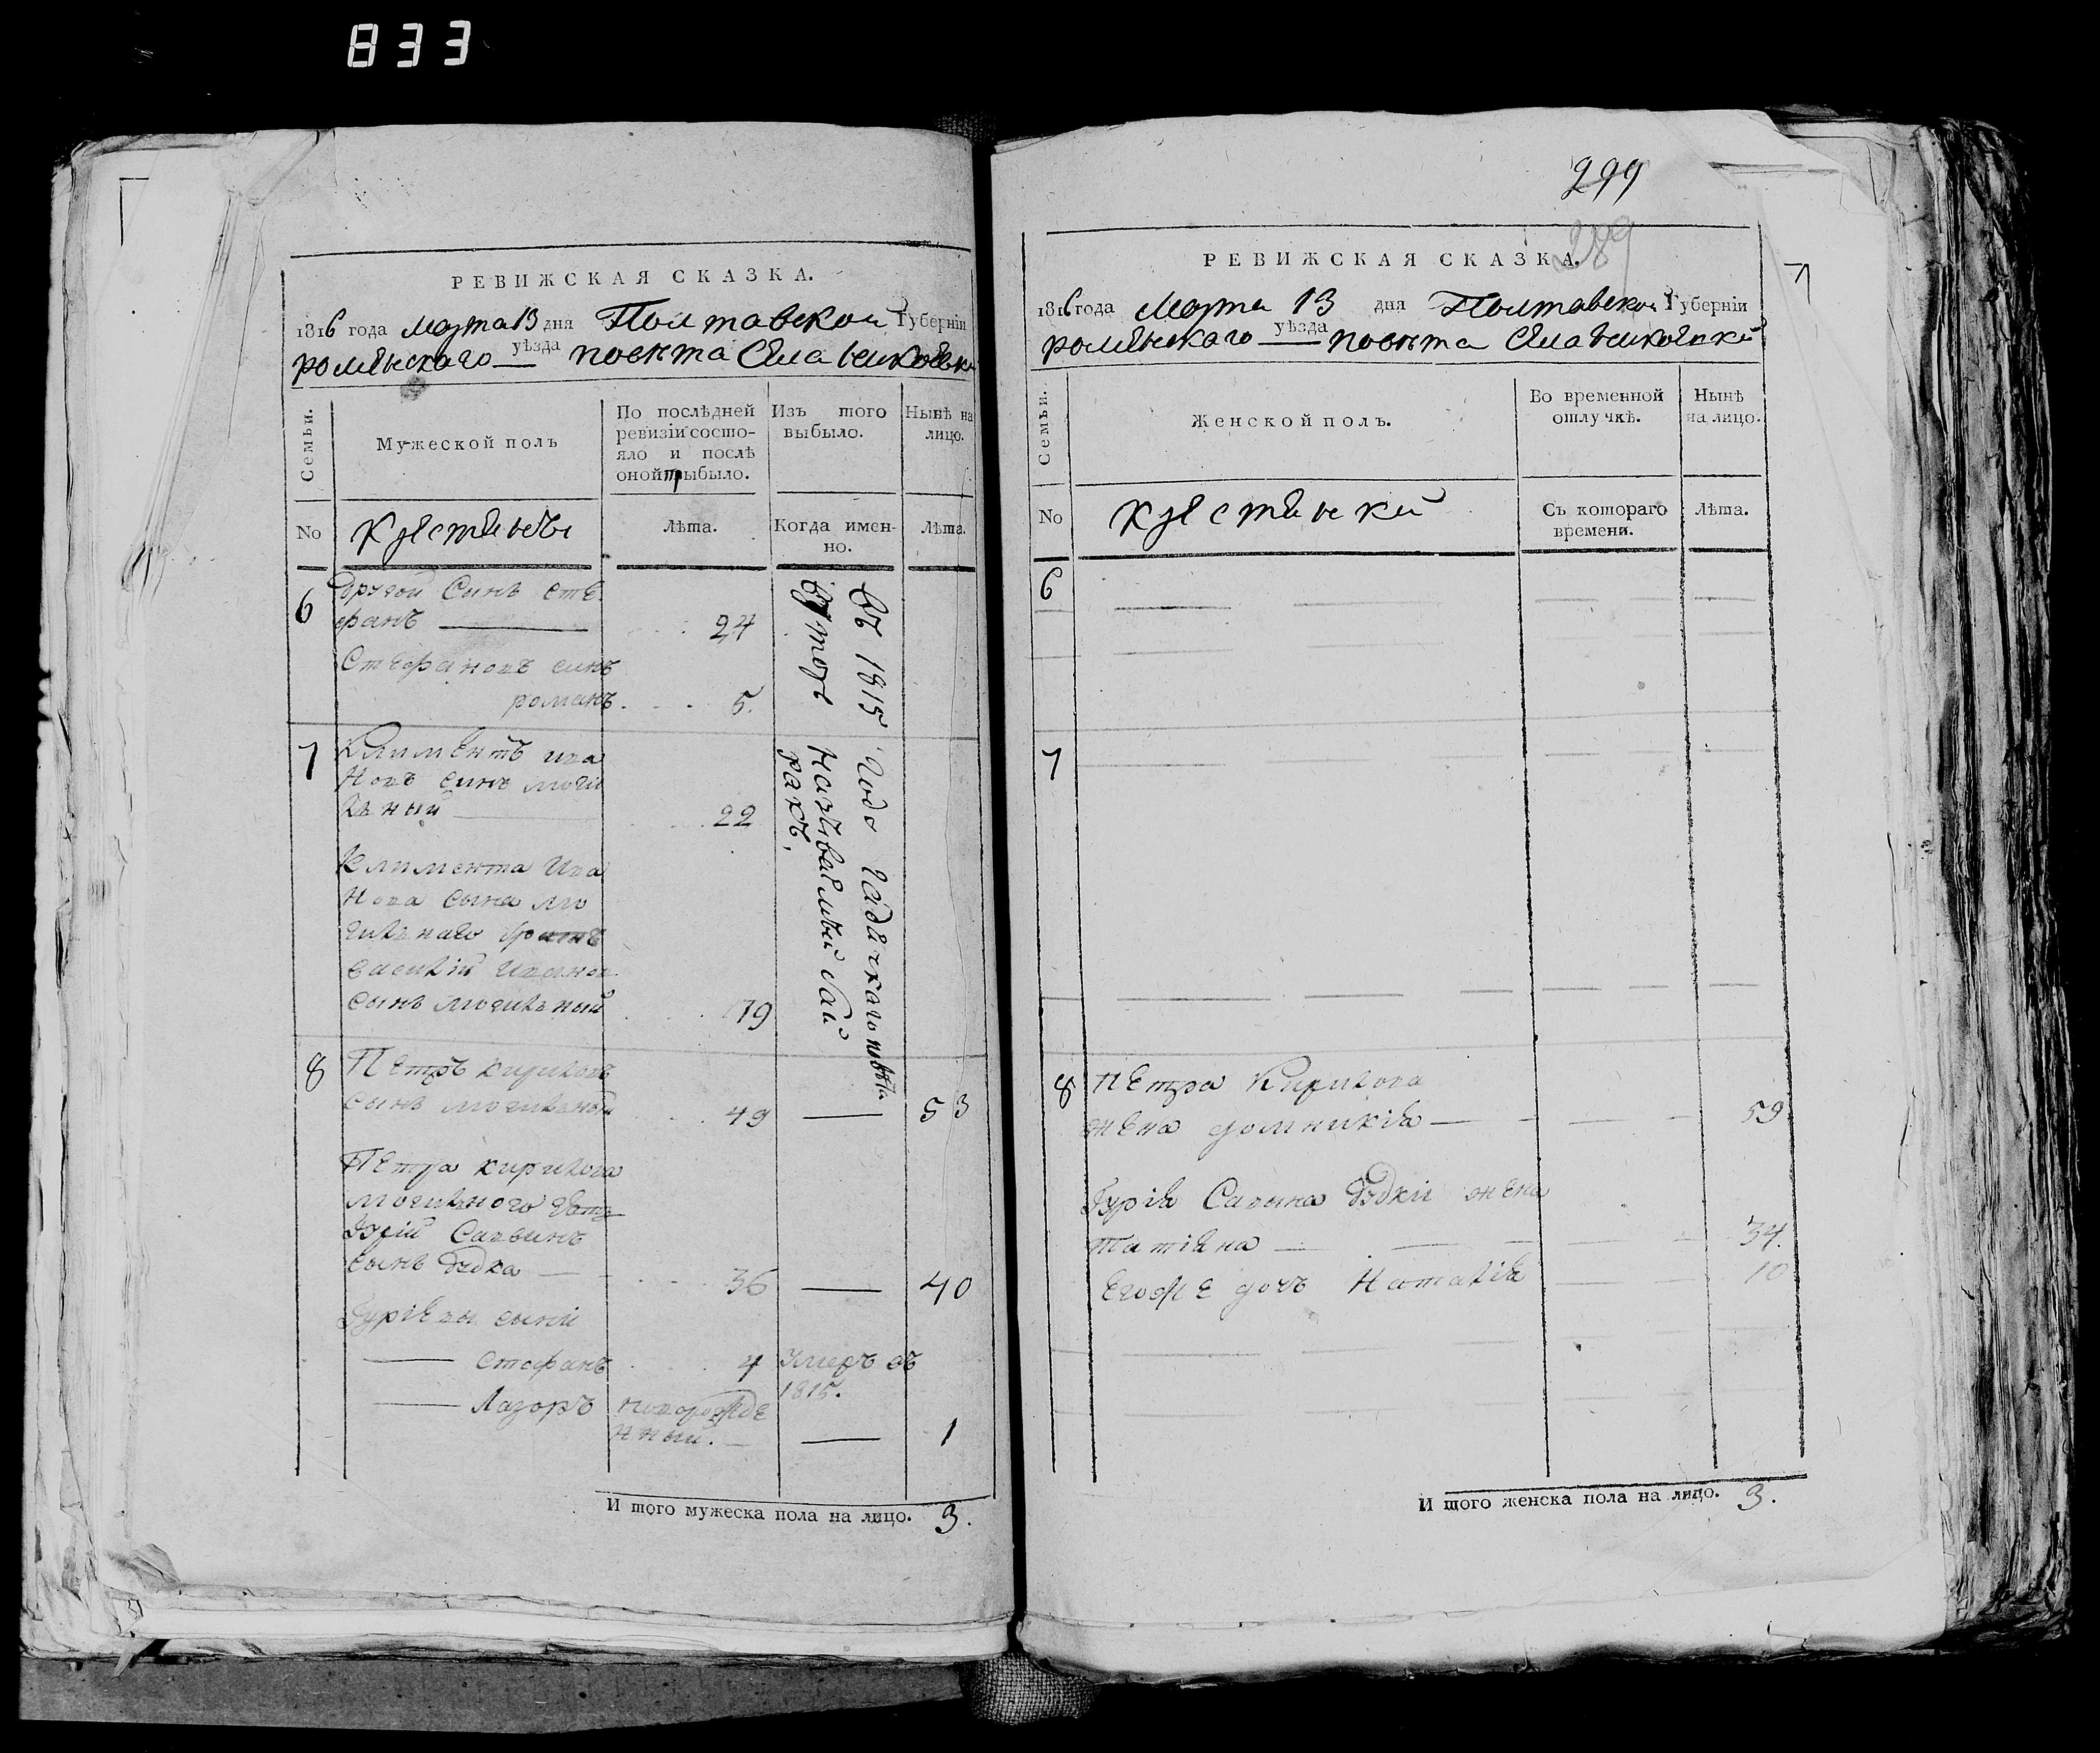 833
РЕВИЖСКАЯ СКАЗКА.
1816 года Марта 13 дня Полтавской Губерніи
роменского уѣзда повѣта Села
Семьи.
Мужеской полъ
По послѣдней ревизіи состо-
яло и послѣ
оной прыбыло.
Изъ того
выбыло.
Нынѣ на
лицо.
No
Крестяне
Лѣта.
Когда имен-
но.
Лѣта.
6
другой Синъ Сте
фанъ 24
Стефановъ синъ
романъ 5.
въ 1815 года Гадячкаго повѣта
7
Климентъ ива
новъ синъ могил
ьный 22
Климента Ива
нова сына мо
гильнаго братъ
василій Иванов
сынъ могильный 19
8
Петръ кириловъ
сынъ могильный 49 — 53
Петра кирилова
могильного зять
Гурій Саввинъ
сынъ 36 — 40
Гуріевы сыни
— Стефанъ 4 Умеръ въ
1815.
— Лазоръ новорожде
нный. — 1
И того мужеска пола на лицо. 3.
299
289
РЕВИЖСКАЯ СКАЗКА.
1816 года Марта 13 дня Полтавской Губерніи
роменскаго уѣзда повѣта Села
Семьи.
Женской полъ.
Во временной
отлучкѣ.
Нынѣ
на лицо.
No
Крестянки
Съ котораго
времени.
Лѣта.
6
7
8
Петра Кирилова
жена домникія 59
Гурія Савына жена
татіяна 34.
Егожъ дочь Наталія 10
И того женска пола на лицо. 3.